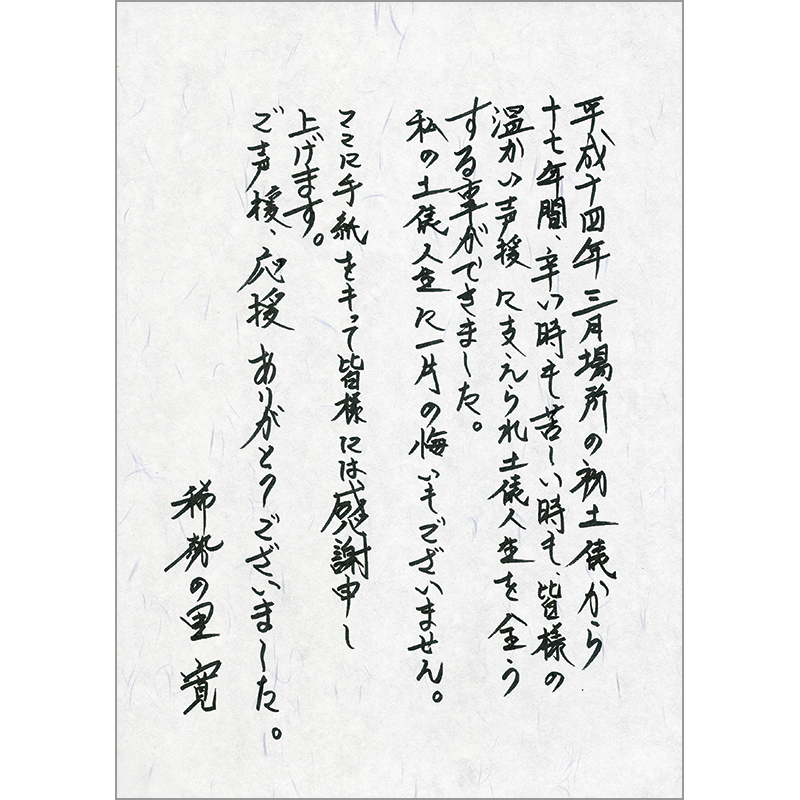 平成十四年三月場所の初土俵から
十七年間、辛い時も苦しい時も、皆様の
温かい声援に支えられ土俵人生を全う
する事ができました。
私の土俵人生に一片の悔いもございません。
ここに手紙をもって皆様には感謝申し
上げます。
ご声援、応援ありがとうございました。
稀勢の里 寛